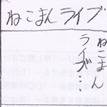 ねこまんライブ
ねこまん
ライズ…